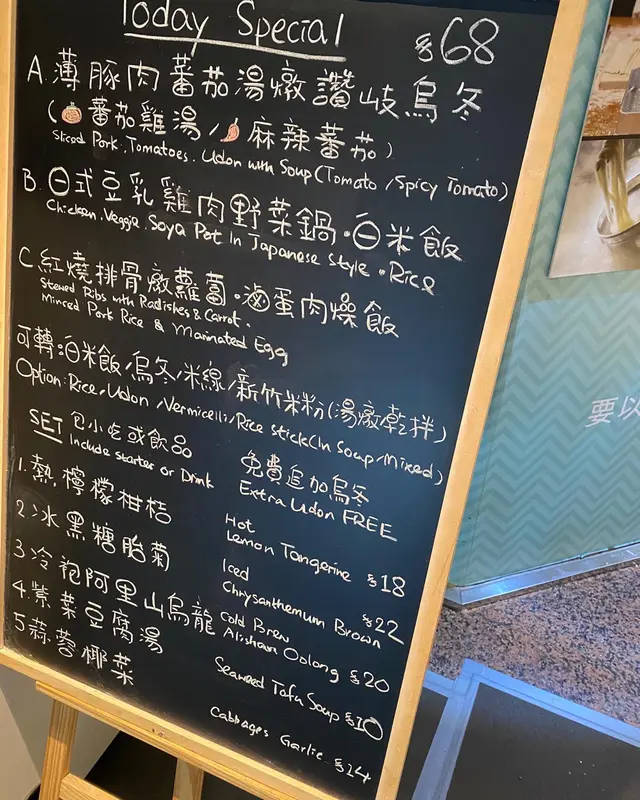 Today Special $68
A.薄豚肉蕃茄湯燉讚岐烏冬
(蕃茄雞湯/麻辣蕃茄)
Sliced Pork.Tomatoes.Udon with Soup(Tomato/Spicy Tomato)
B.日式豆乳雞肉野菜鍋.白米飯
Chicken.Veggie.Soya Pot In Japanese Style.Rice
C紅燒排骨燉蘿蔔.滷蛋肉燥飯
Stewed Ribs with Radishes & Carrot.
Minced Pork Rice & Marinated Egg
可轉:白米飯/烏冬/米線/新竹米粉(湯燉乾拌)
Option:Rice/Udon/Vermicelli/Rice stick(In Soup/Mixed)
SET 包小吃或飲品
Include starter or Drink
免費追加烏冬
Extra Udon FREE
1.熱檸檬柑桔
Hot
Lemon Tangerine $18
2冰黑糖胎菊
Iced
Chrysanthemum Brown $22
3.冷袍阿里山烏龍
Cold Brew
Alishan Oolong $20
4.紫菜豆腐湯
Seaweed Tofu Soup $10
5蒜蓉椰菜
Cabbages Garlic $24
要以